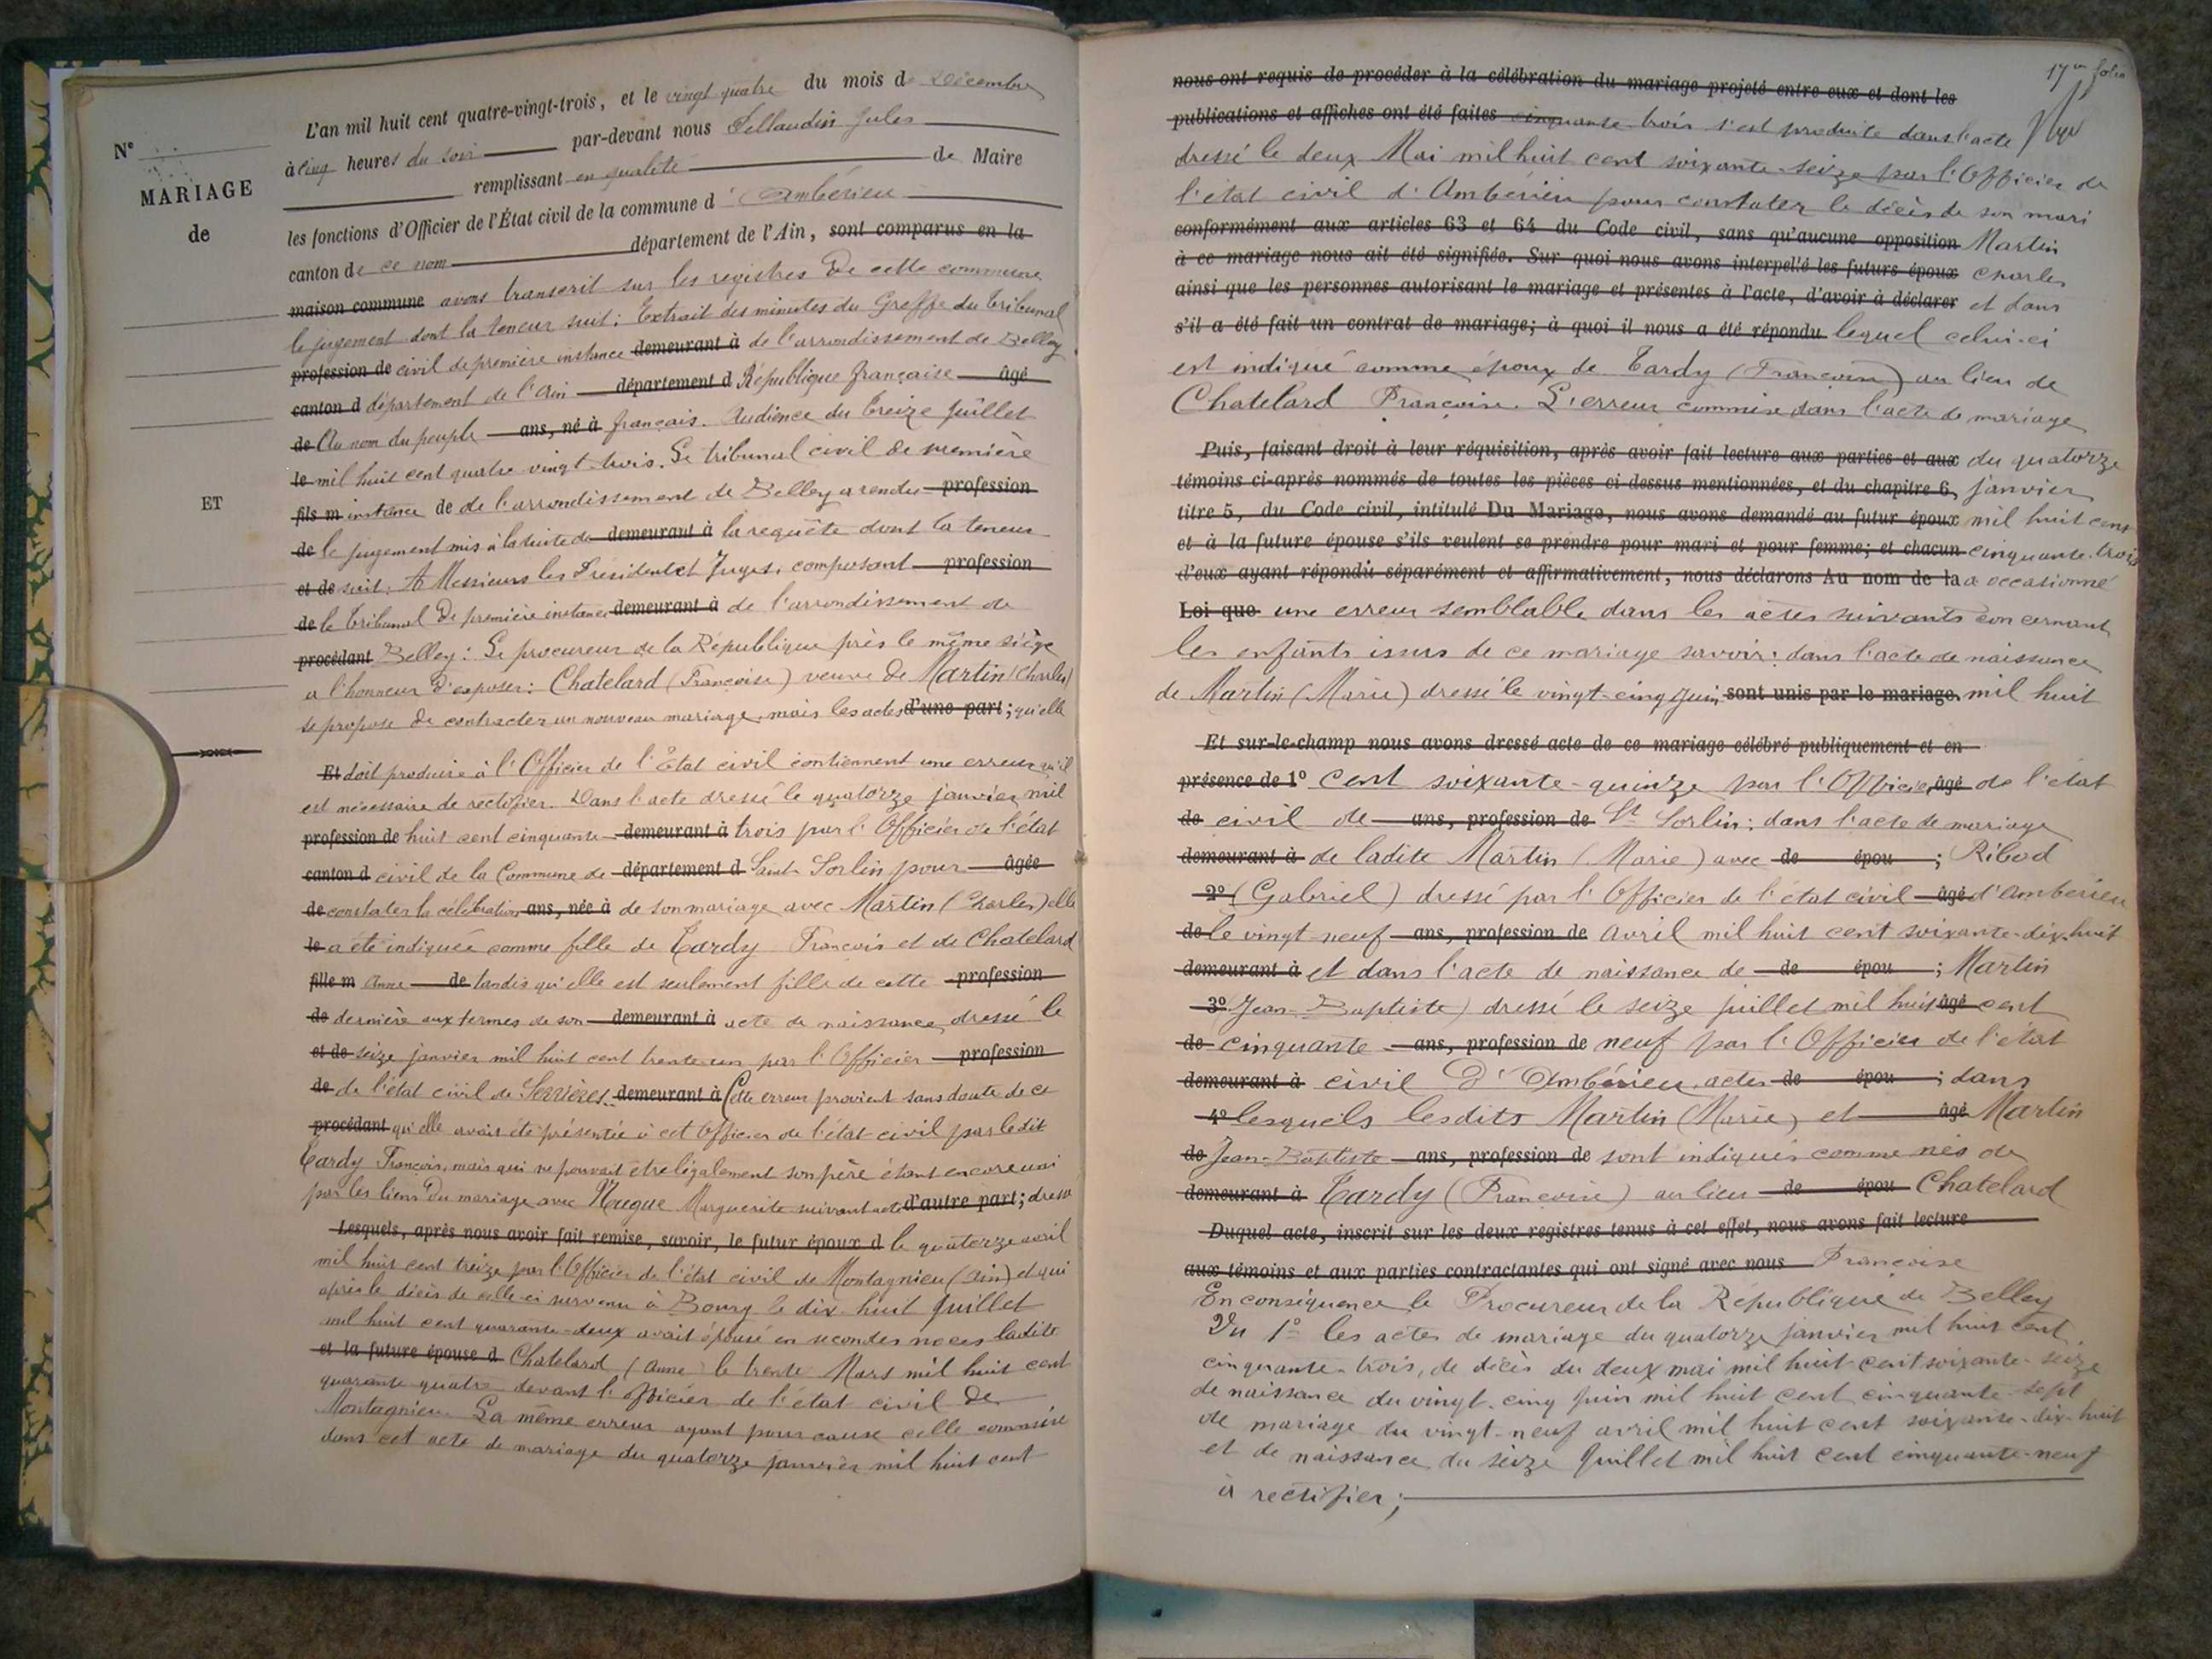 L'an mil huit cent quatre-vingt-trois, et le vingt quatre du mois de Décembre
à cinq heures du soir par-devant nous Jules
remplissant en qualité de Maire
les fonctions d'Officier de l'État civil de la commune d'Ambérieu
canton de ce nom département de l'Ain, sont comparus en la
maison commune avons transcrit sur les registres de cette commune
le jugement dont la teneur suit: Extrait des minutes du Greffe du Tribunal
profession de civil de première instance demeurant à de l'arrondissement de Belley
canton d département de l'Ain département d République française âgé
de Au nom du peuple ans, né à français. Audience du treize juillet
le mil huit cent quatre vingt trois. Le tribunal civil de première
fils m instance de de l'arrondissement de Belley a rendu profession
de le jugement mis à la suite de demeurant à la requête dont la teneur
et de suit: A Messieurs les Président et Juges, composant profession
de le tribunal de première instance demeurant à de l'arrondissement de
procédant Belley: Le procureur de la République près le même siège
a l'honneur d'exposer: Chatelard (Françoise) veuve de Martin (Charles)
se propose de contracter un nouveau mariage, mais les actes d'une part; qu'elle
Et doit produire à l'Officier de l'État civil contiennent une erreur qu'il
est nécessaire de rectifier. Dans l'acte dressé le quatorze janvier mil
profession de huit cent cinquante demeurant à trois par l'Officier de l'état
canton d civil de la Commune de département d Saint Sorlin pour âgée
de constater la célébration ans, née à de son mariage avec Martin (Charles) elle
le a été indiquée comme fille de Tardy François et de Chatelard
fille m Anne de tandis qu'elle est seulement fille de cette profession
de dernière aux termes de son demeurant à acte de naissance dressé le
et de seize janvier mil huit cent trente un par l'Officier profession
de de l'état civil de Serrières. demeurant à Cette erreur provient sans doute de ce
procédant qu'elle avait été présentée à cet Officier de l'état civil par ledit
Tardy François, mais qui ne pouvait être légalement son père étant encore uni
par les liens du mariage avec Marguerite suivant acte d'autre part; dressé
Lesquels, après nous avoir fait remise, savoir, le futur époux d le quatorze avril
mil huit cent treize par l'Officier de l'état civil de Montagnieu (Ain) et qui
après le décès de celle-ci survenu à Bourg le dix-huit juillet
mil huit cent quarante-deux avait épousé en secondes noces ladite
et la future épouse d Chatelard (Anne) le trente Mars mil huit cent
quarante quatre devant l'Officier de l'état civil de
Montagnieu. La même erreur ayant pour cause celle commise
dans cet acte de mariage du quatorze janvier mil huit cent
N°
MARIAGE
de
ET
17me folio
nous ont requis de procéder à la célébration du mariage projeté entre eux et dont les
publications et affiches ont été faites cinquante-trois s'est produite dans l'acte
dressé le deux Mai mil huit cent soixante-seize par l'Officier de
l'état civil d'Ambérieu pour constater le décès de son mari
conformément aux articles 63 et 64 du Code civil, sans qu'aucune opposition Martin
à ce mariage nous ait été signifiée. Sur quoi nous avons interpelé les futurs époux Charles
ainsi que les personnes autorisant le mariage et présentes à l'acte, d'avoir à déclarer et dans
s'il a été fait un contrat de mariage; à quoi il nous a été répondu lequel celui-ci
est indiqué comme époux de Tardy (Françoise) au lieu de
Chatelard Françoise. L'erreur commise dans l'acte de mariage
Puis, faisant droit à leur réquisition, après avoir fait lecture aux parties et aux du quatorze
témoins ci-après nommés de toutes les pièces ci-dessus mentionnées, et du chapitre 6, janvier
titre 5, du Code civil, intitulé Du Mariage, nous avons demandé au futur époux mil huit cent
et à la future épouse s'ils veulent se prendre pour mari et pour femme; et chacun cinquante-trois
d'eux ayant répondu séparément et affirmativement, nous déclarons Au nom de la a occasionné
Loi que une erreur semblable dans les actes suivants concernant
les enfants issus de ce mariage savoir: dans l'acte de naissance
de Martin (Marie) dressé le vingt-cinq juin sont unis par le mariage. mil huit
Et sur-le-champ nous avons dressé acte de ce mariage célébré publiquement et en
présence de 1° cent soixante-quinze par l'Officier âgé de l'état
de civil de ans, profession de St Sorlin; dans l'acte de mariage
demeurant à de ladite Martin (Marie) avec de épou ; Ribod
2° (Gabriel) dressé par l'Officier de l'état civil âgé d'Ambérieu
de le vingt-neuf ans, profession de avril mil huit cent soixante-dix-huit
demeurant à et dans l'acte de naissance de de épou ; Martin
3° Jean-Baptiste) dressé le seize juillet mil huit âgé cent
de cinquante ans, profession de neuf par l'Officier de l'état
demeurant à civil d'Ambérieu, actes de épou ; dans
4° lesquels lesdits Martin (Marie) et âgé Martin
de Jean-Baptiste ans, profession de sont indiqués comme nés de
demeurant à Tardy (Françoise) au lieu de épou Chatelard
Duquel acte, inscrit sur les deux registres tenus à cet effet, nous avons fait lecture
aux témoins et aux parties contractantes qui ont signé avec nous Françoise
En conséquence le Procureur de la République de Belley
Vu 1° les actes de mariage du quatorze janvier mil huit cent
cinquante-trois, de décès du deux mai mil huit cent soixante-seize
de naissance du vingt-cinq juin mil huit cent cinquante-sept
de mariage du vingt-neuf avril mil huit cent soixante-dix-huit
et de naissance du seize juillet mil huit cent cinquante-neuf
à rectifier;